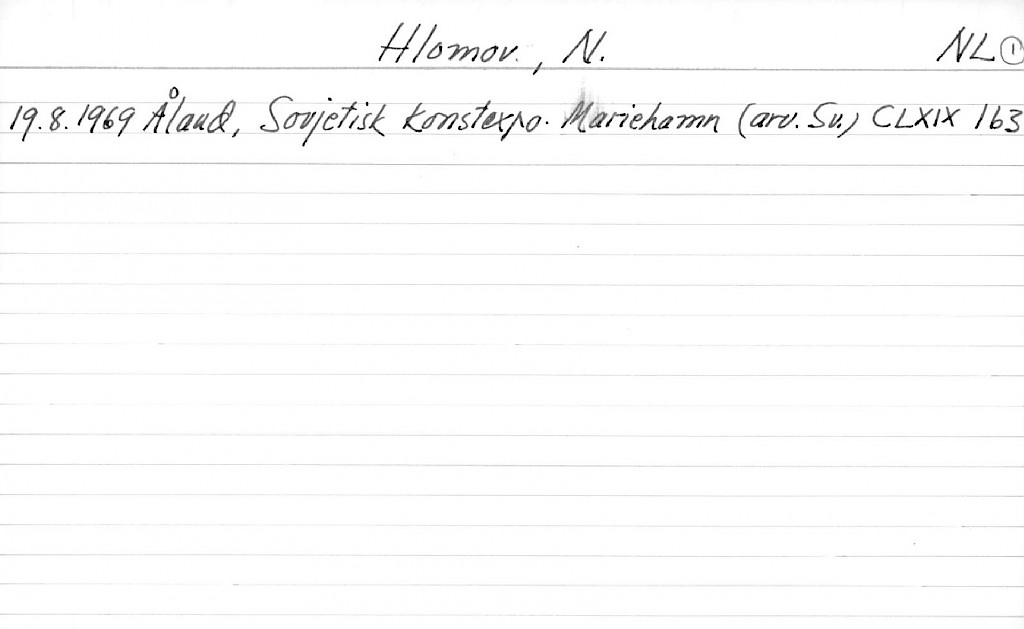 Hlomov., N. NL ①
19.8.1969 Åland, Sovjetisk konstexpo. Mariehamn (arv. Sv.) CLXIX 163